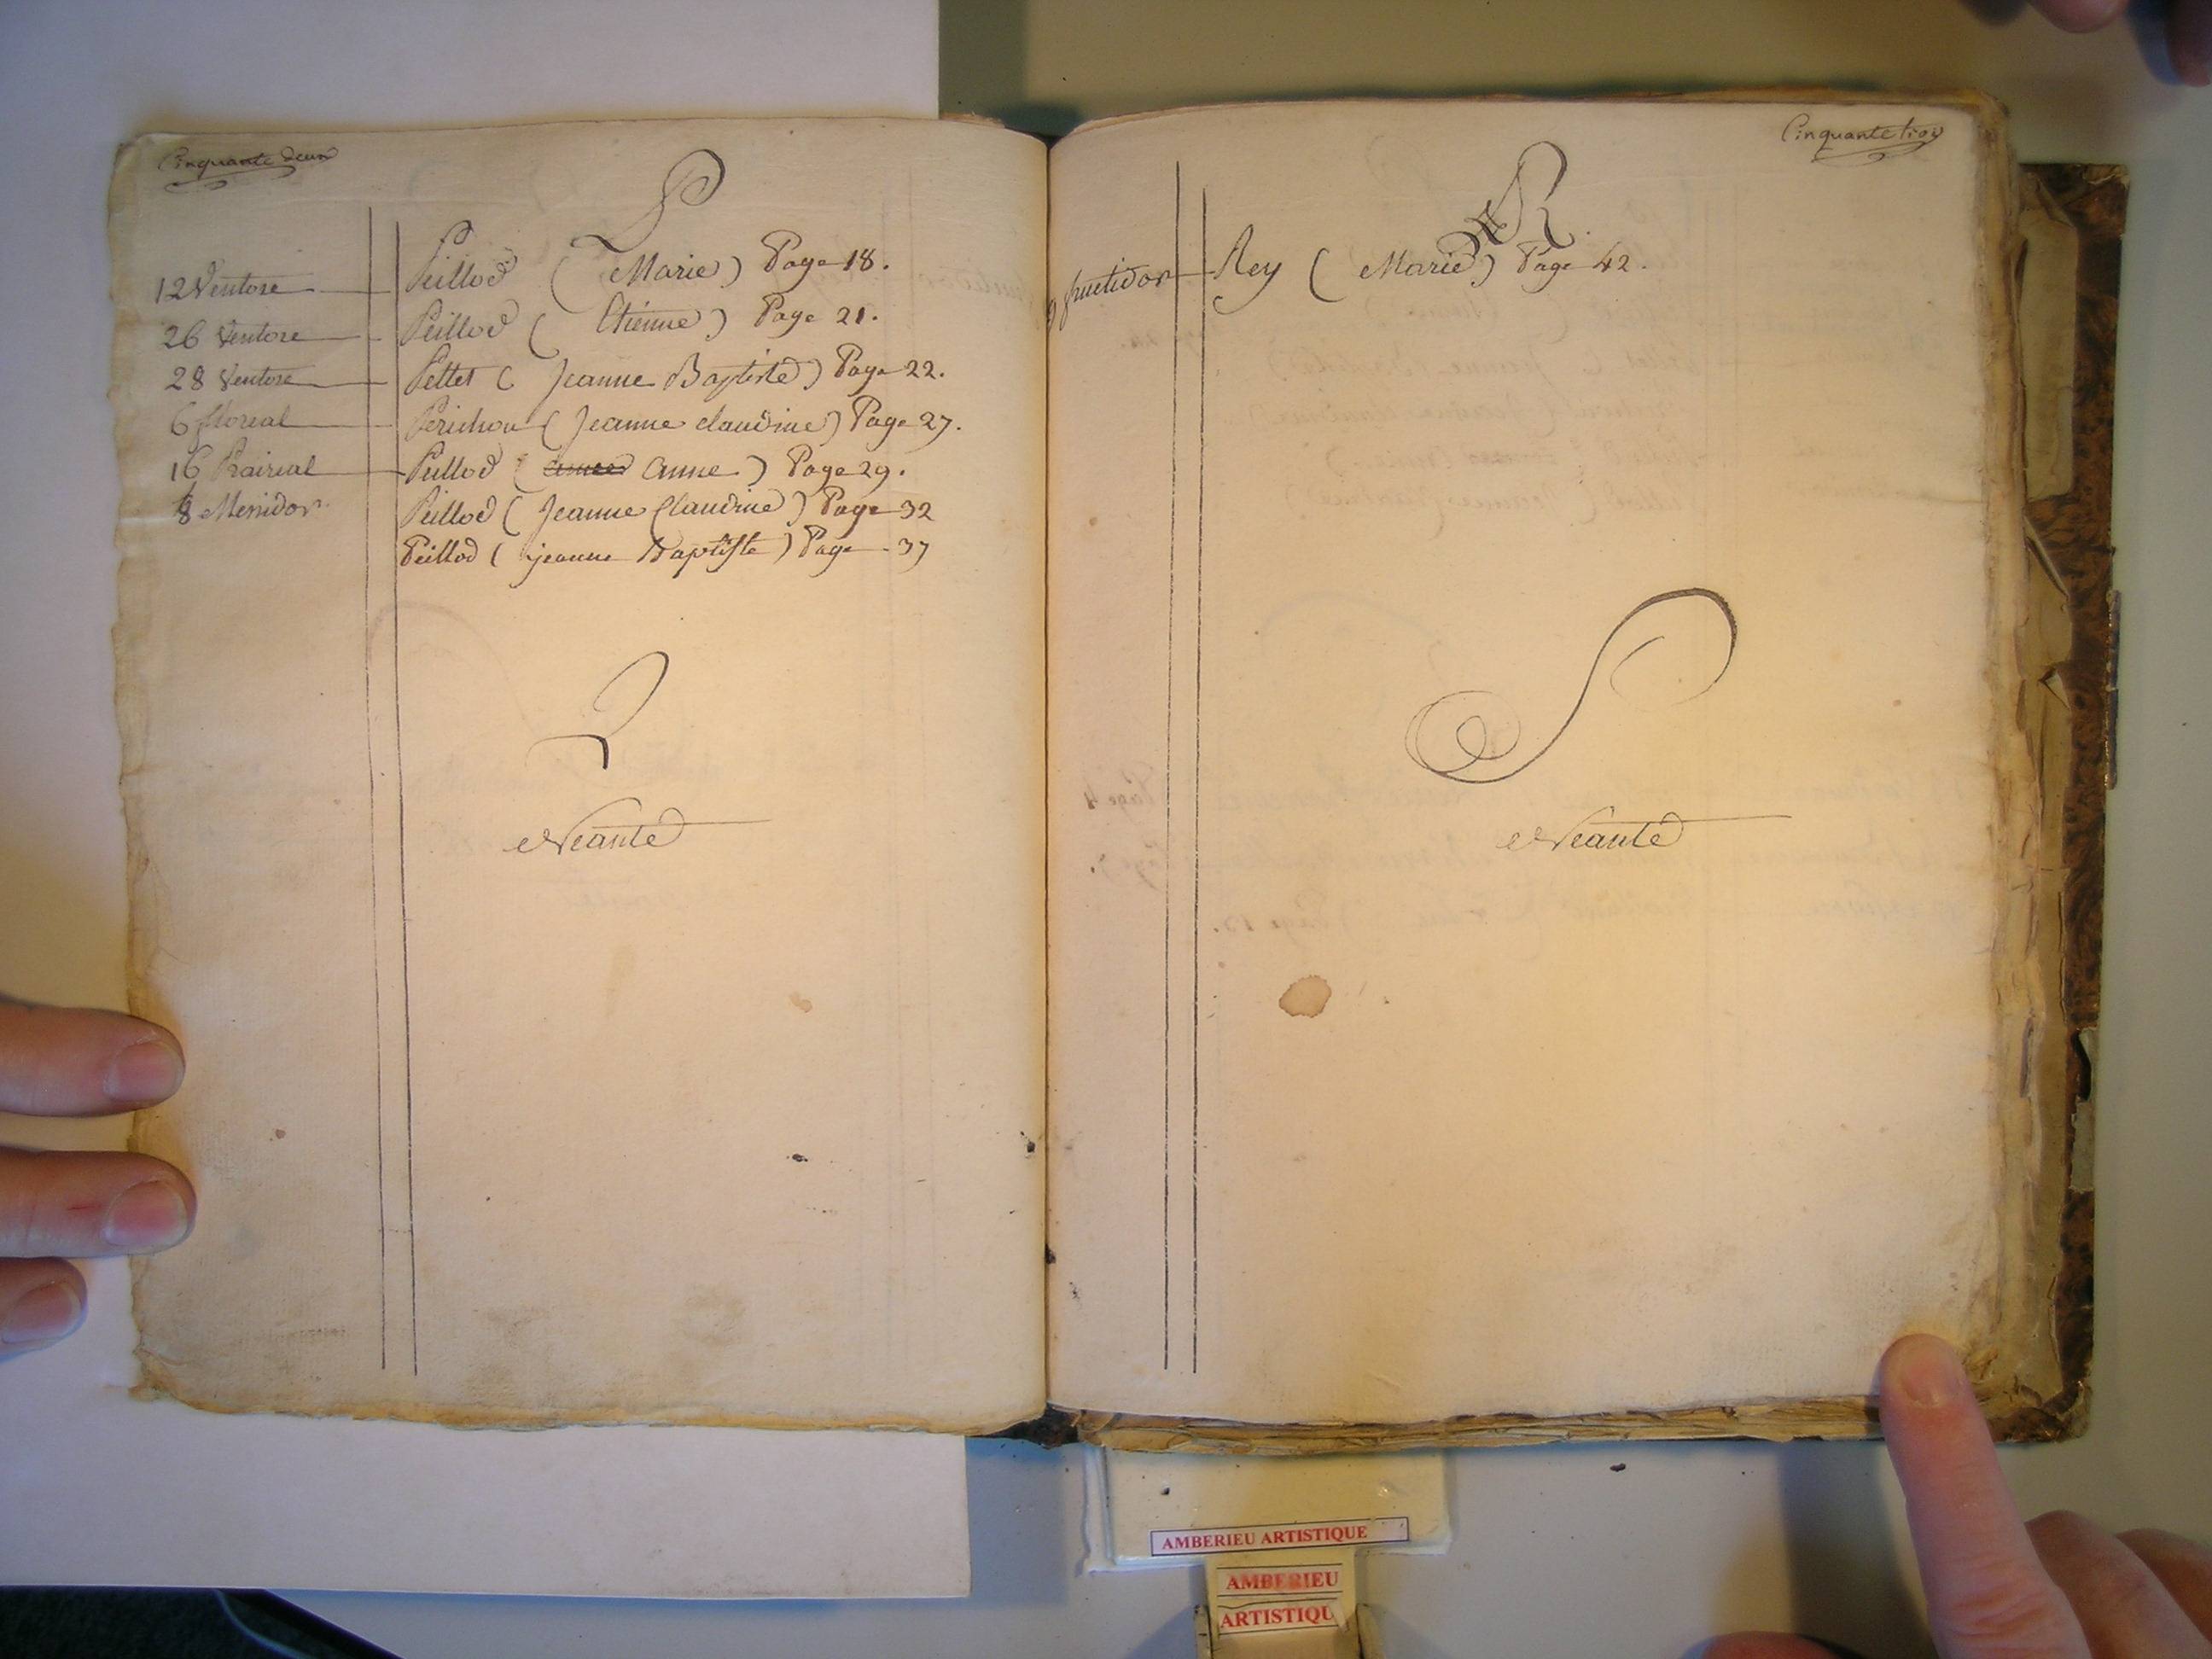 Cinquante deux
P
12 Ventose Peillod (Marie) Page 18.
26 Ventose Peillod (Etienne) Page 21.
28 Ventose Pettet (Jeanne Baptiste) Page 22.
6 floreal Perichou (Jeanne claudine) Page 27.
16 Prairial Peillod (Anne) Page 29.
8 Messidor Peillod (Jeanne Claudine) Page 32
Peillod (jeanne Baptiste) Page 37
Q
Neante
Cinquante trois
R
9 fructidor Rey (Marie) Page 42.
S
Neante
AMBERIEU ARTISTIQUE
AMBERIEU
ARTISTIQU